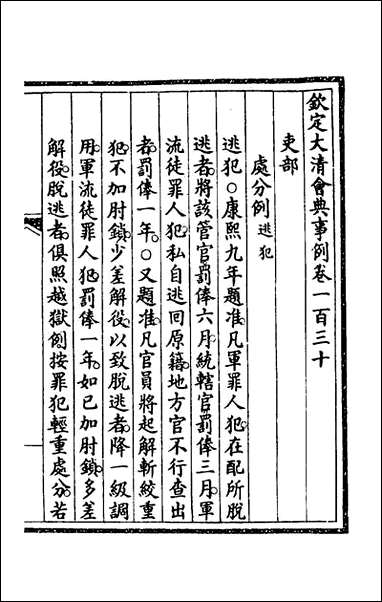 欽定大清會典事例卷一百三十
吏部
處分例逃犯
逃犯○康熙九年題准凡軍罪人犯在配所脫
逃者將該管官罰俸六月統轄官罰俸三月軍
流徒罪人犯私自逃回原籍地方官不行查出
者罰俸一年○又題准凡官員將起解斬絞重
犯不加肘鎖少差解役以致脫逃者降一級調
用軍流徒罪人犯罰俸一年如已加肘鎖多差
解役脫逃者俱照越獄例按罪犯輕重處分若